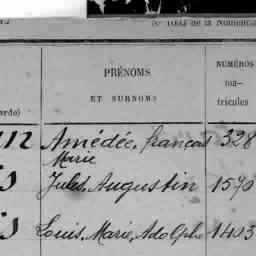 (N° 1684 de la Nomencl
PRÉNOMS
ET SURNOMS
NUMÉROS
ma-
tricules
Amédée, françois 328
Marie
Jules, Augustin 1570
Louis, Marie, Adolphe 1403